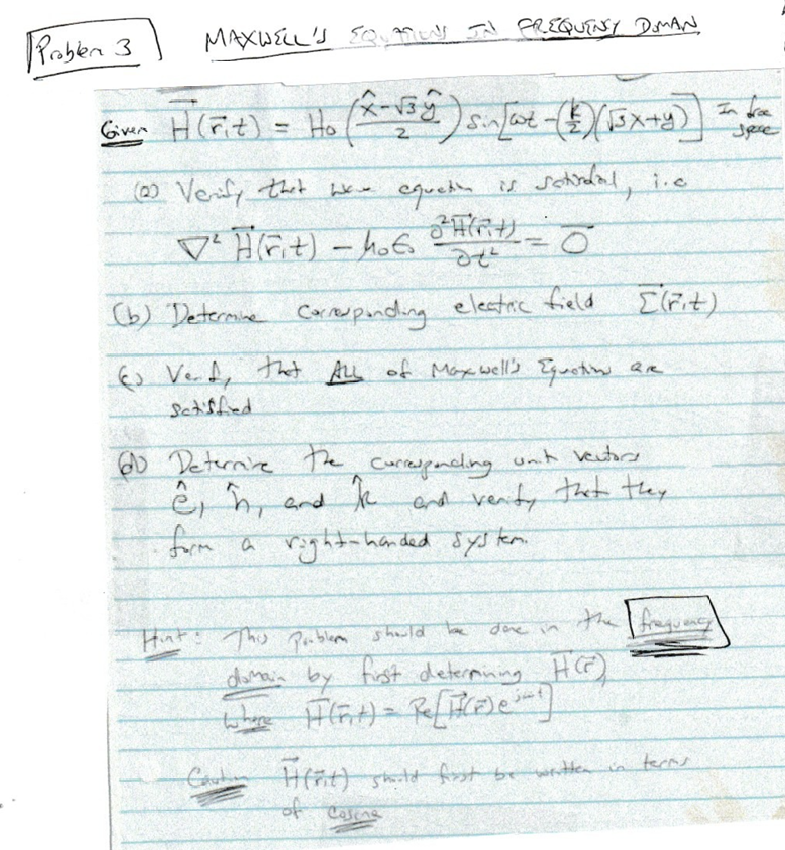 Problem 3
MAXWELL'S EQUATIONS IN FREQUENCY DOMAN
Given H(r,t) = Ho (x̂-√3ŷ / 2) sin[ωt - (k/2)(√3x+y)] In free space
(a) Verify that wave equation is satisfied, i.e
∇² H(r,t) - μ₀ε₀ ∂²H(r,t)/∂t² = 0
(b) Determine corresponding electric field Σ(r,t)
(c) Verify that ALL of Maxwell's Equations are
satisfied
(d) Determine the corresponding unit vectors
ê, ĥ, and k̂ and verify that they
form a right-handed system.
Hint: This problem should be done in the frequency
domain by first determining H(r)
where H(r,t) = Re[H(r)e^jωt]
Caution H(r,t) should first be written in terms
of cosine